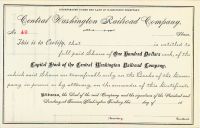 INCORPORATED UNDER THE LAWS OF WASHINGTON TERRITORY
Central Washington Railroad Company.
No 48
Shares
This is to Certify, that is entitled to
full paid Shares of One Hundred Dollars each, of the
Capital Stock of the Central Washington Railroad Company,
which said Shares are transferable only on the Books of the Company
in person or by attorney on the surrender of this Certificate
Witness, the Seal of the said Company and the signatures of the President and
Secretary at Washington Territory this day of 18